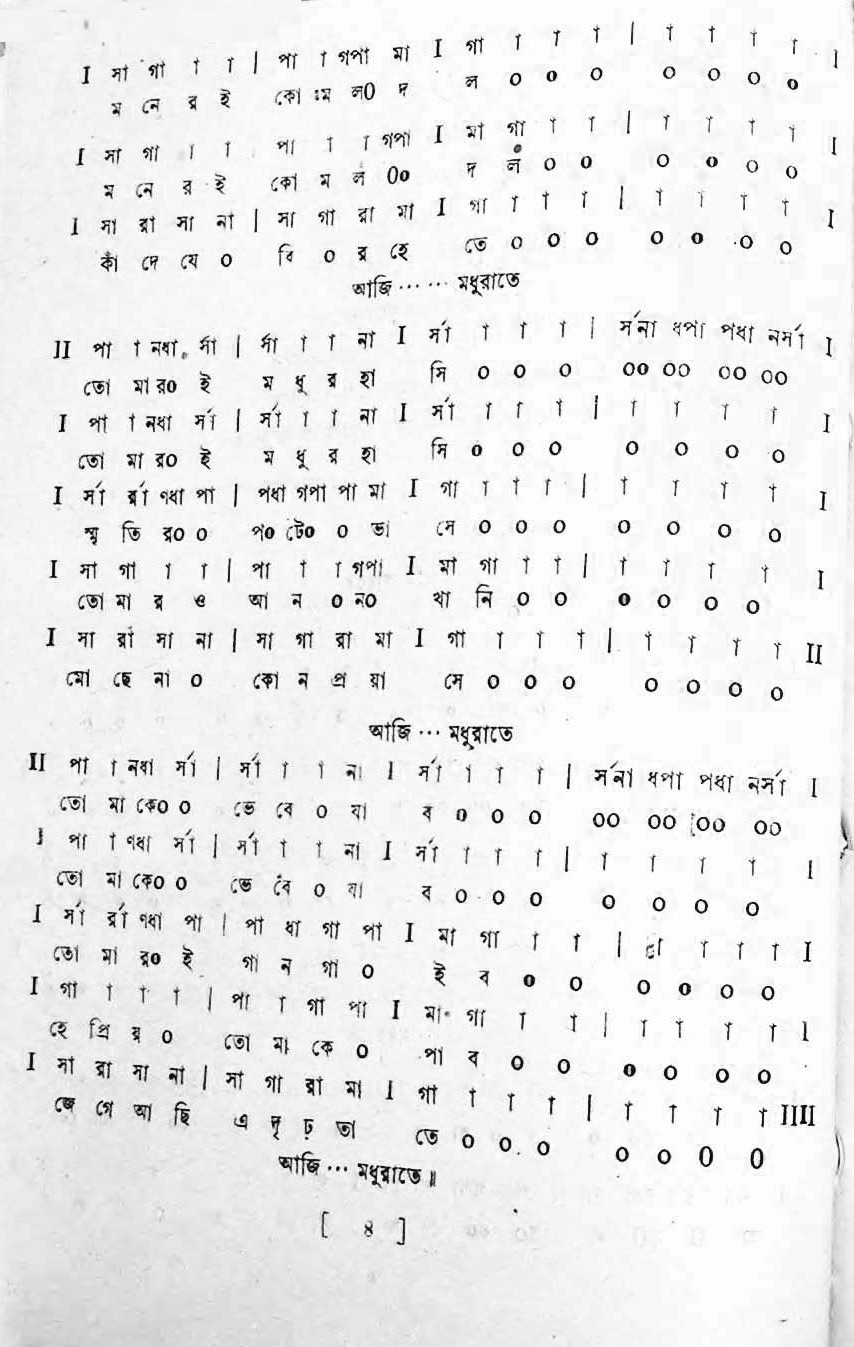 I সা গা া া | পা া গপা মা I গা া া া | া া া া I
ম নে র ই কো ঃম ল০ দ ল ০ ০ ০ ০ ০ ০ ০
I সা গা া া পা া া গপা I মা গা া া | া া া া I
ম নে র ই কো ম ল ০০ দ ল ০ ০ ০ ০ ০ ০
I সা রা সা না | সা গা রা মা I গা া া া | া া া া I
কাঁ দে যে ০ বি ০ র হে তে ০ ০ ০ ০ ০ ০ ০
আজি ⋯ ⋯ মধুরাতে
II পা া নধা র্সা | র্সা া া না I র্সা া া া | র্সনা ধপা পধা নর্সা I
তো মা র০ ই ম ধু র হা সি ০ ০ ০ ০০ ০০ ০০ ০০
I পা া নধা র্সা | র্সা া া না I র্সা া া া | া া া া I
তো মা র০ ই ম ধু র হা সি ০ ০ ০ ০ ০ ০ ০
I র্সা র্রা ণধা পা | পধা গপা পা মা I গা া া া | া া া া I
স্মৃ তি র০ ০ প০ টে০ ০ ভা সে ০ ০ ০ ০ ০ ০ ০
I সা গা া া | পা া া গপা I মা গা া া | া া া া I
তো মা র ও আ ন ০ ন০ খা নি ০ ০ ০ ০ ০ ০
I সা রা সা না | সা গা রা মা I গা া া া | া া া া II
মো ছে না ০ কো ন প্র য়া সে ০ ০ ০ ০ ০ ০ ০
আজি ⋯ মধুরাতে
II পা া নধা র্সা | র্সা া া না I র্সা া া া | র্সনা ধপা পধা নর্সা I
তো মা কে০ ০ ভে বে ০ যা ব ০ ০ ০ ০০ ০০ ০০ ০০
I পা া ণধা র্সা | র্সা া া না I র্সা া া া | া া া া I
তো মা কে০ ০ ভে বে ০ যা ব ০ ০ ০ ০ ০ ০ ০
I র্সা র্রা ণধা পা | পা ধা গা পা I মা গা া া | া া া I
তো মা র০ ই গা ন গা ০ ই ব ০ ০ ০ ০ ০ ০
I গা া া া | পা া গা পা I মা গা া া | া া া া I
হে প্রি য় ০ তো মা কে ০ পা ব ০ ০ ০ ০ ০ ০
I সা রা সা না | সা গা রা মা I গা া া া | া া া া IIII
জে গে আ ছি এ দৃ ঢ় তা তে ০ ০ ০ ০ ০ ০ ০
আজি ⋯ মধুরাতে॥
[ ৪ ]